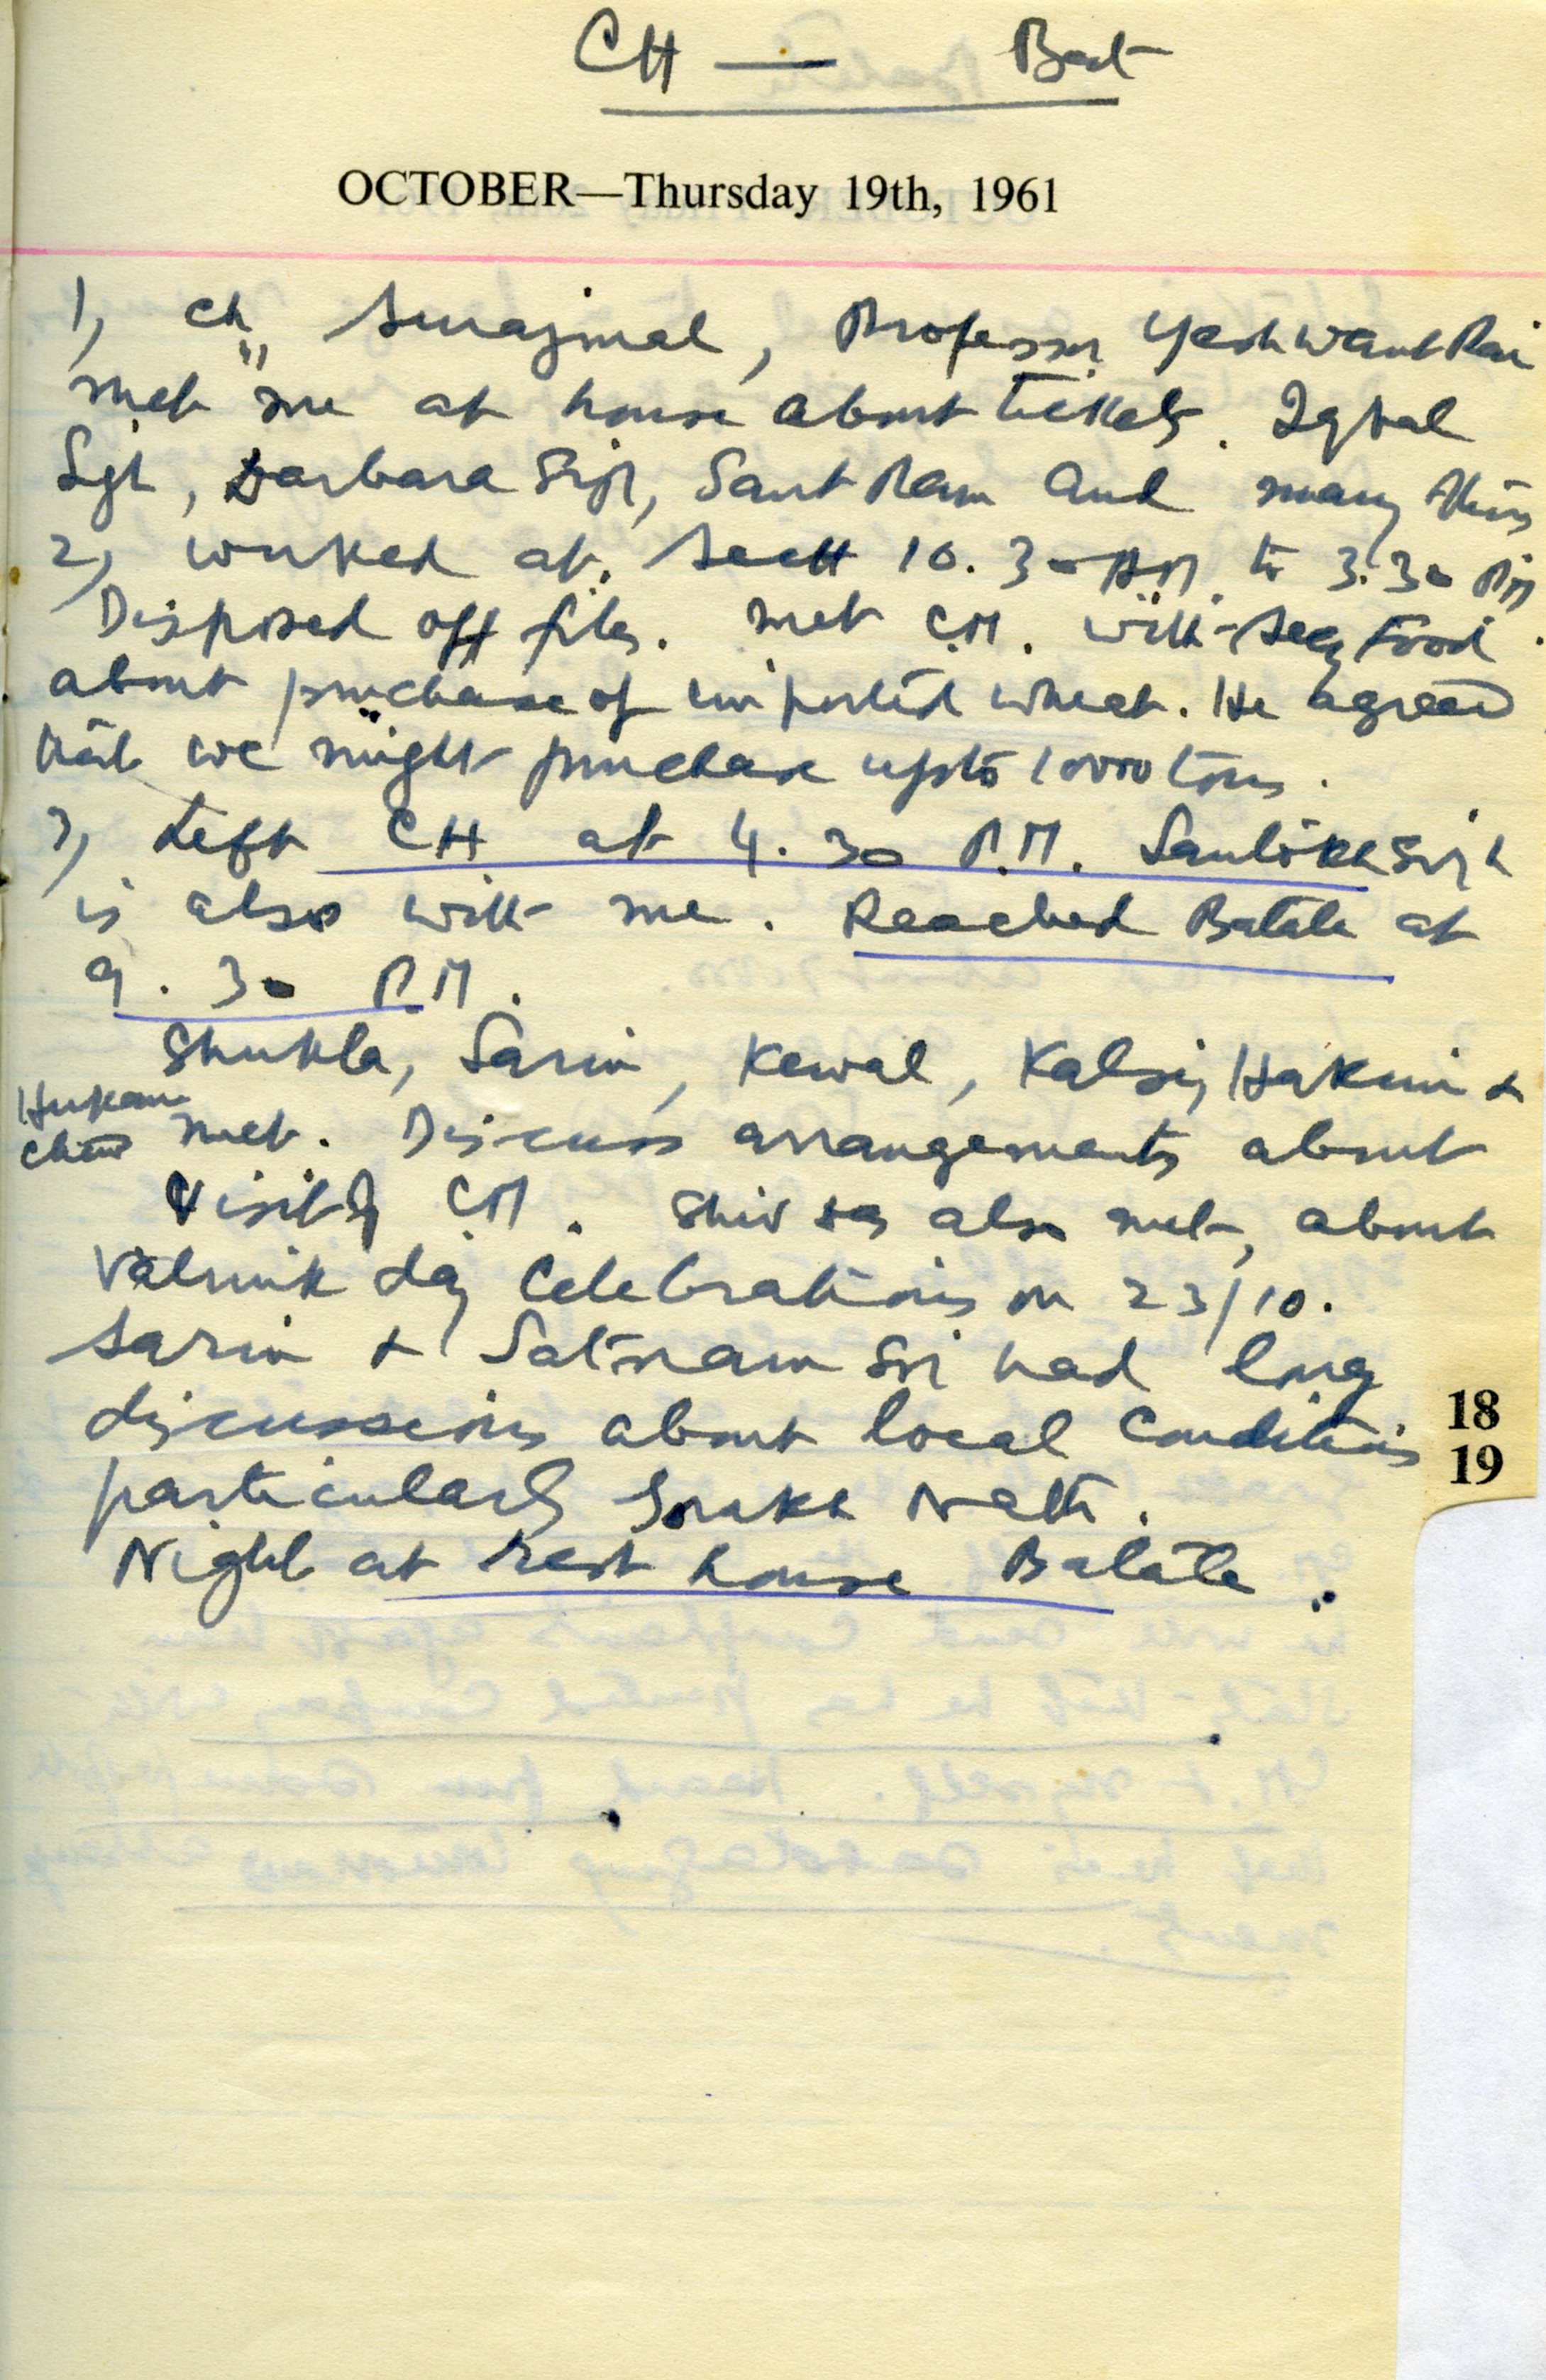 CH — Bat
OCTOBER—Thursday 19th, 1961
1) Ch" Surajmal, Professor Yashwant Rai
met me at house about tickets. Iqbal
Sgh, Darbara Singh, Sant Ram and many
2) worked at Sectt 10.30 AM. to 3.30 PM
Disposed off files. met C.M. with Secy Food.
about purchase of imported wheat. He agreed
that we might purchase upto 10000 tons.
3) Left CH at 4.30 P.M. Santokh Singh
is also with me. Reached Batala at
9.30 P.M.
Shukla, Sarin, Kewal, Kalsi, Hakim &
Hukam
Chand met. Discuss arrangements about
visit of CM. Shiv das also met, about
Valmik day Celebrations on 23/10.
Sarin & Satnam Sin had long
discussions about local Conditions
18
particularly Gorakh Nath.
19
Night at rest house Batala.